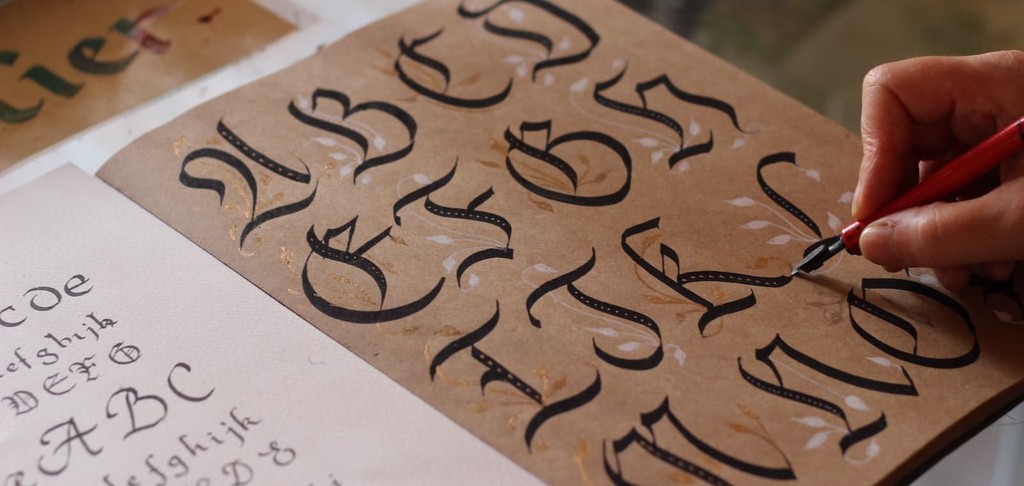 ier
A B C D
E F G H
I J K L
M N O
c d e
efghijk
D E F G
A B C
efghijk